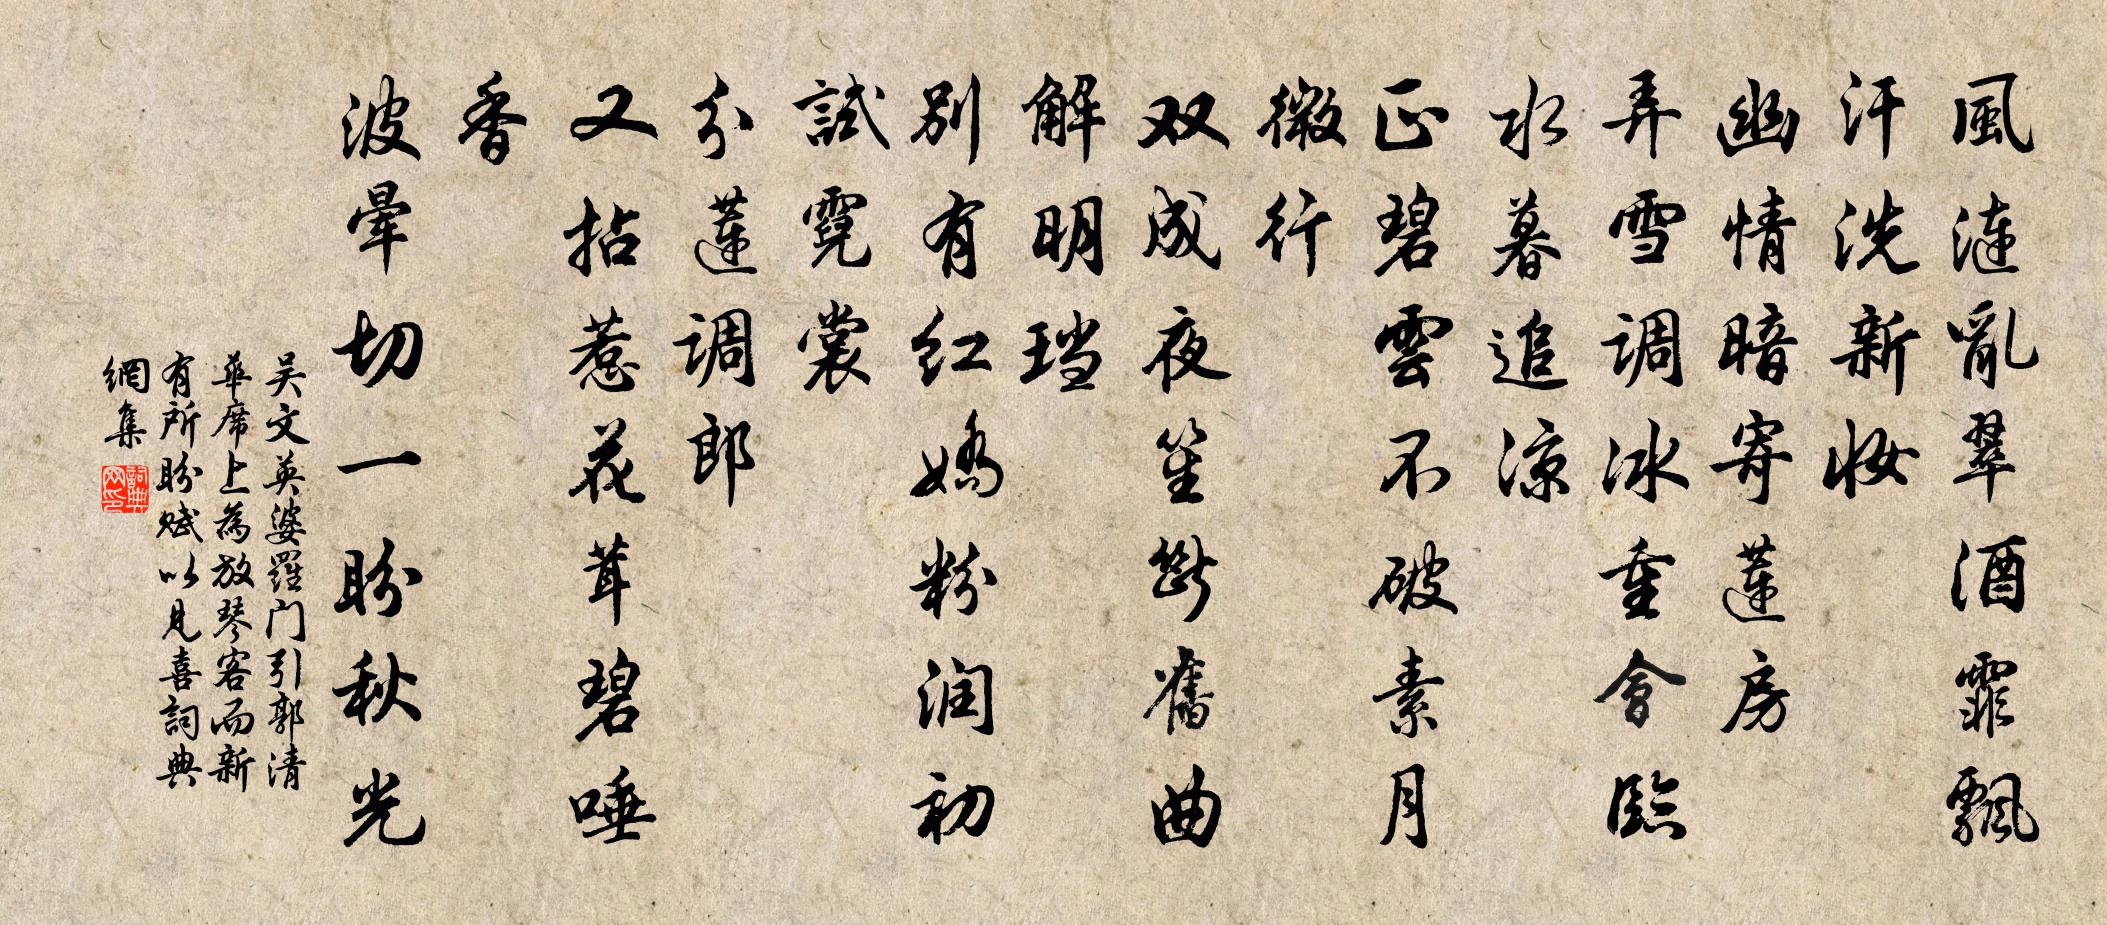 風漣亂翠酒霏飄
汗洗新妝
幽情暗寄蓮房
弄雪调冰重會臨
水暮追涼
正碧雲不破素月
微行
双成夜笙斷舊曲
解明珰
別有红嬌粉润初
試霓裳
分蓮调郎
又拈惹花茸碧唾
香
波暈切一盼秋光
吴文英婆羅门引郭清
華席上為放琴客而新
有所盼赋以見喜詞典
網集
詞典网印